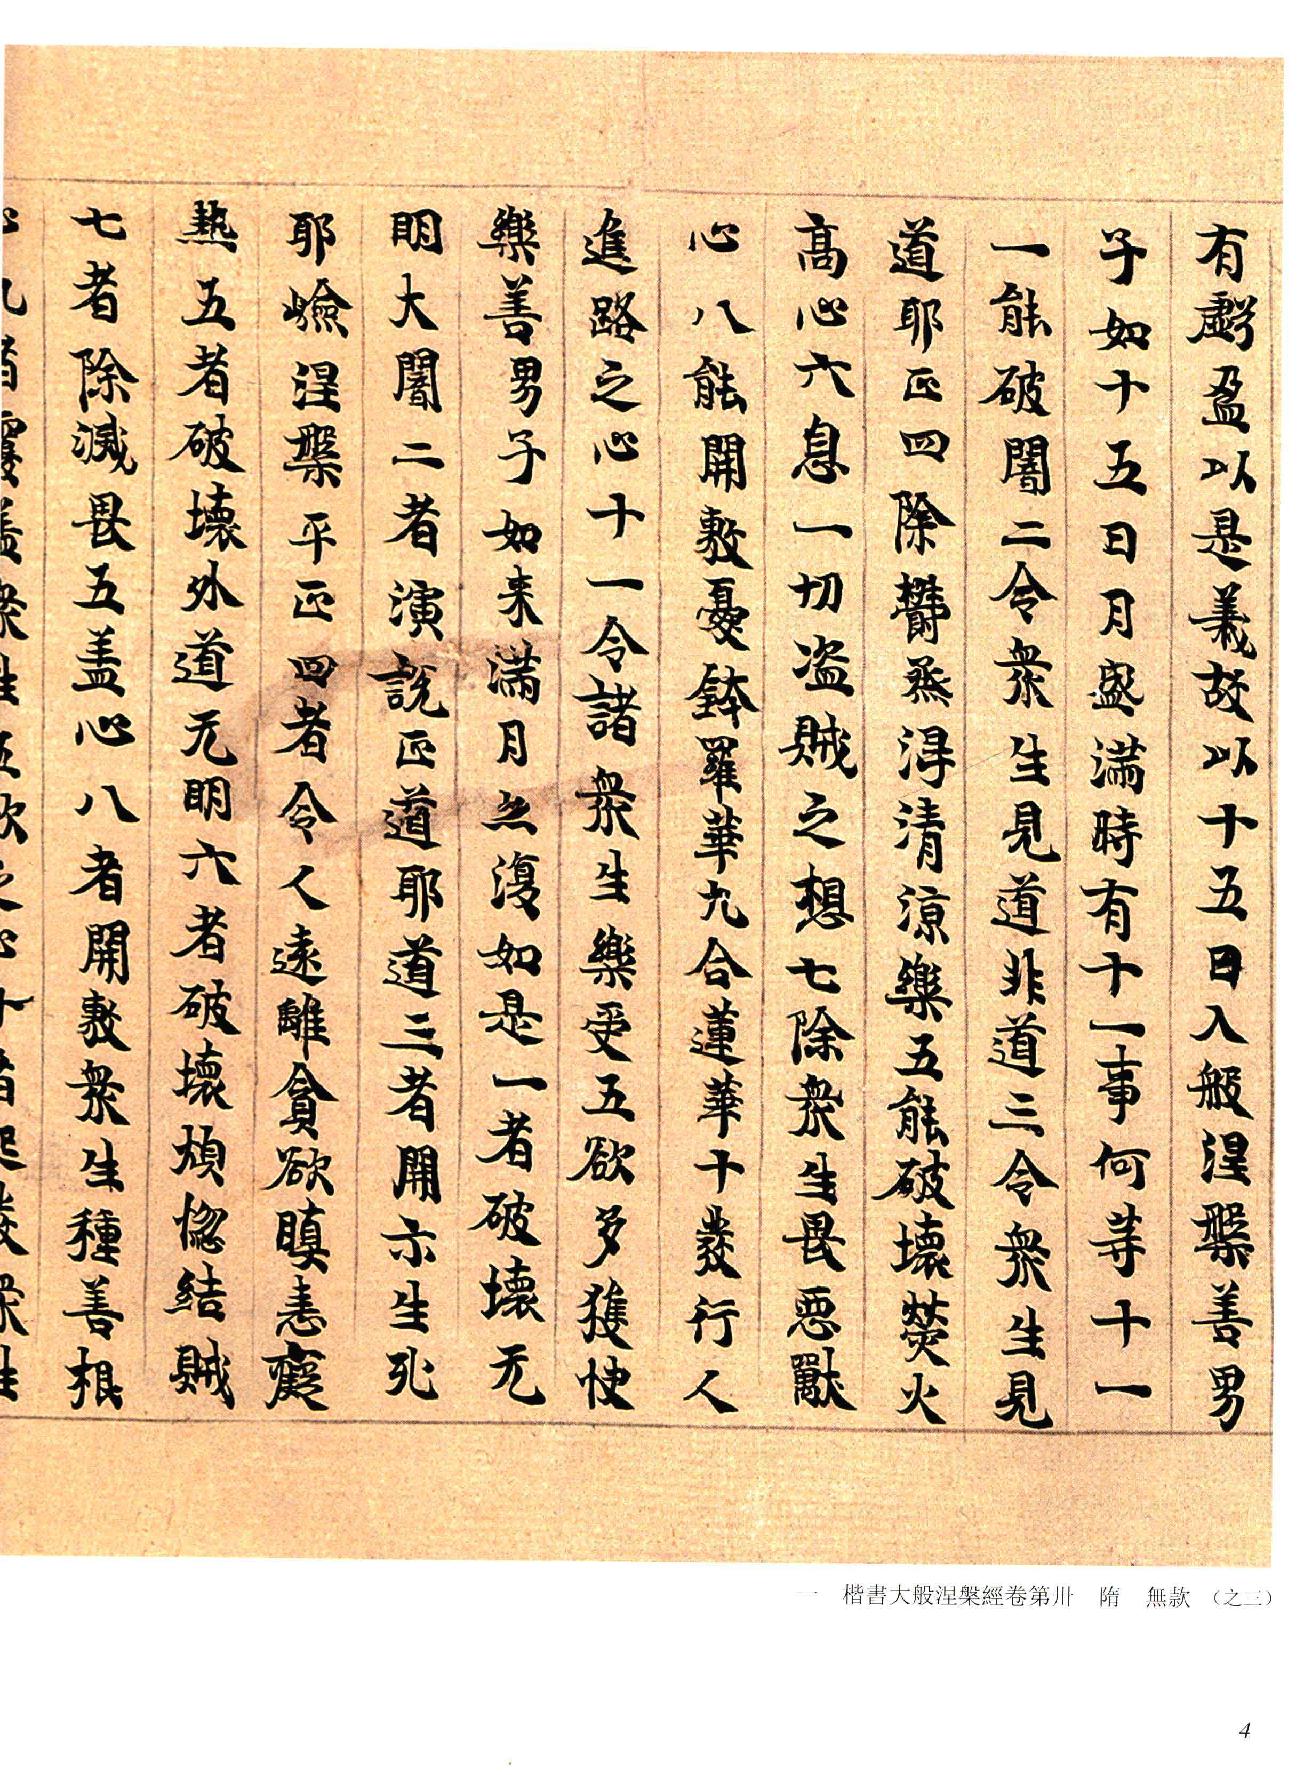 有虧盈以是義故以十五日入般涅槃善男
子如十五日月盛滿時有十一事何等十一
一能破闇二令衆生見道非道三令衆生見
道耶正四除欝蒸得清涼樂五能破壞熒火
高心六息一切盗賊之想七除衆生畏惡獸
心八能開敷憂鉢羅華九合蓮華十發行人
進路之心十一令諸衆生樂受五欲多獲快
樂善男子如來滿月亦復如是一者破壞无
明大闇二者演說正道耶道三者開示生死
耶嶮涅槃平正四者令人遠離貪欲瞋恚癡
熱五者破壞外道无明六者破壞煩惱結賊
七者除滅畏五盖心八者開敷衆生種善根
心九者覆盖衆生五欲之心十者起發衆生
一 楷書大般涅槃經卷第卅 隋 無款 (之三)
4